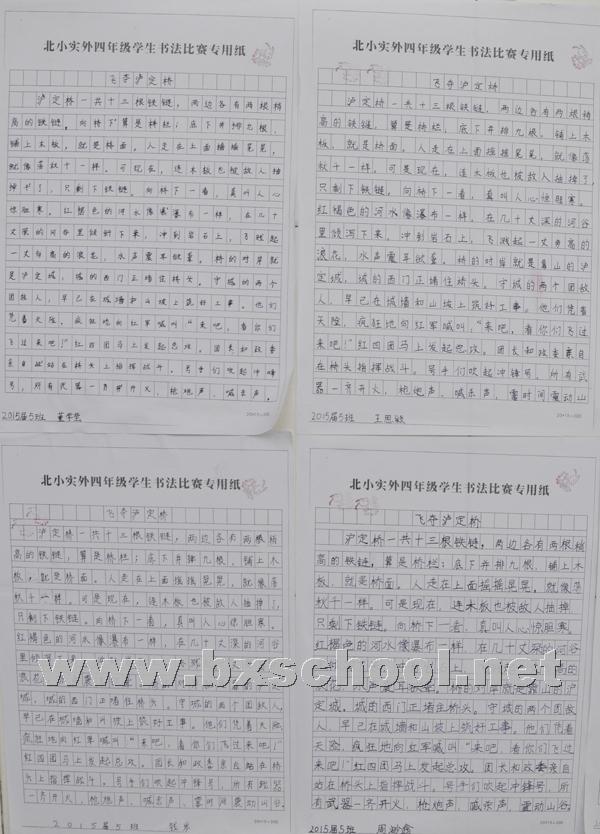 北小实外四年级学生书法比赛专用纸
飞夺泸定桥
泸定桥一共十三根铁链，两边各有两根稍
高的铁链，
铺上木板，就是桥面。人走在上面摇摇晃晃，
就像荡秋千一样。可现在，连木板也被敌人抽
掉了，只剩下铁链。向桥下一看，真叫人心
惊胆寒。红褐色的河水像瀑布一样，在几十
丈深的河谷里倾泻下来，冲到岩石上，飞溅起
一丈多高的浪花，水声震耳欲聋。桥的对岸就
是泸定城，城的西门正堵住桥头。守城的两个
团敌人，早已在城墙和山坡上筑好工事。他们
凭着天险，疯狂地向红军喊叫“来吧，看你们
飞过来吧！”红四团马上发起总攻。团长和政委
亲自站在桥头上指挥战斗。号手们吹起冲锋
号，所有武器一齐开火，枪炮声，喊杀声，
2015届5班
北小实外四年级学生书法比赛专用纸
飞夺泸定桥
泸定桥一共十三根铁链，两边各有两根稍
高的铁链，算是桥栏，底下并排九根，铺上木
板，就是桥面。人走在上面摇摇晃晃，就像荡
秋千一样。可是现在，连木板也被敌人抽掉了，
只剩下铁链。向桥下一看，真叫人心惊胆寒。
红褐色的河水像瀑布一样，在几十丈深的河谷
里倾泻下来，冲到岩石上，飞溅起一丈多高的
浪花，水声震耳欲聋。桥的对岸就是靠山的泸
定城，城的西门正堵住桥头。守城的两个团敌
人，早已在城墙和山坡上筑好工事。他们凭着
天险，疯狂地向红军喊叫，“来吧，看你们飞过
来吧！”红四团马上发起总攻。团长和政委亲自
在桥头上指挥战斗。号手们吹起冲锋号，所有武
器一齐开火，枪炮声，喊杀声，霎时间震动山
2015届5班 王思敏
北小实外四年级学生书法比赛专用纸
飞夺泸定桥
泸定桥一共十三根铁链，两边各有两根稍
高的铁链，算是桥栏；底下并排九根，铺上木
板，就是桥面。人走在上面摇摇晃晃，就像荡
秋千一样。可是现在，连木板也被敌人抽掉了，
只剩下铁链。向桥下一看，真叫人心惊胆寒。
红褐色的河水像瀑布一样，在几十丈深的河谷
城，城的西门正堵住桥头。守城的两个团敌人，
早已在城墙和山坡上筑好工事。他们凭着天险，
疯狂地向红军喊叫“来吧，看你们飞过来吧！”
红四团马上发起总攻。团长和政委亲自站在桥
头上指挥战斗。号手们吹起冲锋号，所有武器
一齐开火，枪炮声，喊杀声，霎时间震动山谷
2015届5班
北小实外四年级学生书法比赛专用纸
飞夺泸定桥
泸定桥一共十三根铁链，两边各有两根稍
高的铁链，算是桥栏；底下并排九根，铺上木
板，就是桥面。人走在上面摇摇晃晃，就像荡
秋千一样。可是现在，连木板也被敌人抽掉
只剩下铁链。向桥下一看，真叫人心惊胆寒。
红褐色的河水像瀑布一样，在几十丈深的河谷
定城，城的西门正堵住桥头。守城的两个团敌
人，早已在城墙和山坡上筑好工事。他们凭着
天险，疯狂地向红军喊叫“来吧，看你们飞过
来吧！”红四团马上发起总攻。团长和政委亲自
站在桥头上指挥战斗。号手们吹起冲锋号，所
有武器一齐开火，枪炮声，喊杀声，震动山谷
2015届5班
www.bxschool.net